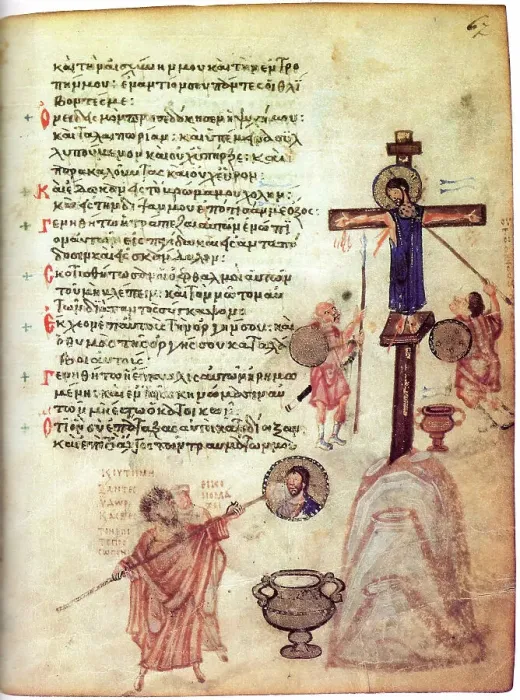 καὶ τὴν αἰσχύνην μου καὶ τὴν ἐντρο
πήν μου: ἐναντίον σου πάντες οἱ θλί
βοντές με:
Ὀνειδισμὸν προσεδόκησεν ἡ ψυχή μου:
καὶ ταλαιπωρίαν: καὶ ὑπέμεινα συλ
λυπούμενον καὶ οὐχ ὑπῆρξε: καὶ
παρακαλοῦντας καὶ οὐχ εὗρον:
Καὶ ἔδωκαν εἰς τὸ βρῶμα μου χολήν:
καὶ εἰς τὴν δίψαν μου ἐπότισάν με ὄξος:
Γενηθήτω ἡ τράπεζα αὐτῶν ἐνώπι
ον αὐτῶν εἰς παγίδα καὶ εἰς ἀνταπό
δοσιν καὶ εἰς σκάνδαλον:
Σκοτισθήτωσαν οἱ ὀφθαλμοὶ αὐτῶν
τοῦ μὴ βλέπειν: καὶ τὸν νῶτον αὐ
τῶν διὰ παντὸς σύγκαμψον:
Ἔκχεον ἐπ αὐτοὺς τὴν ὀργήν σου: καὶ
ὁ θυμὸς τῆς ὀργῆς σου καταλά
βοι αὐτούς:
Γενηθήτω ἡ ἔπαυλις αὐτῶν ἠρημω
μένη: καὶ ἐν τοῖς σκηνώμασιν αὐ
τῶν μὴ ἔστω ὁ κατοικῶν:
Ὅτι ὃν σὺ ἐπάταξας αὐτοὶ κατεδίωξαν
καὶ ἐπὶ τὸ ἄλγος τῶν τραυμάτων μου
67